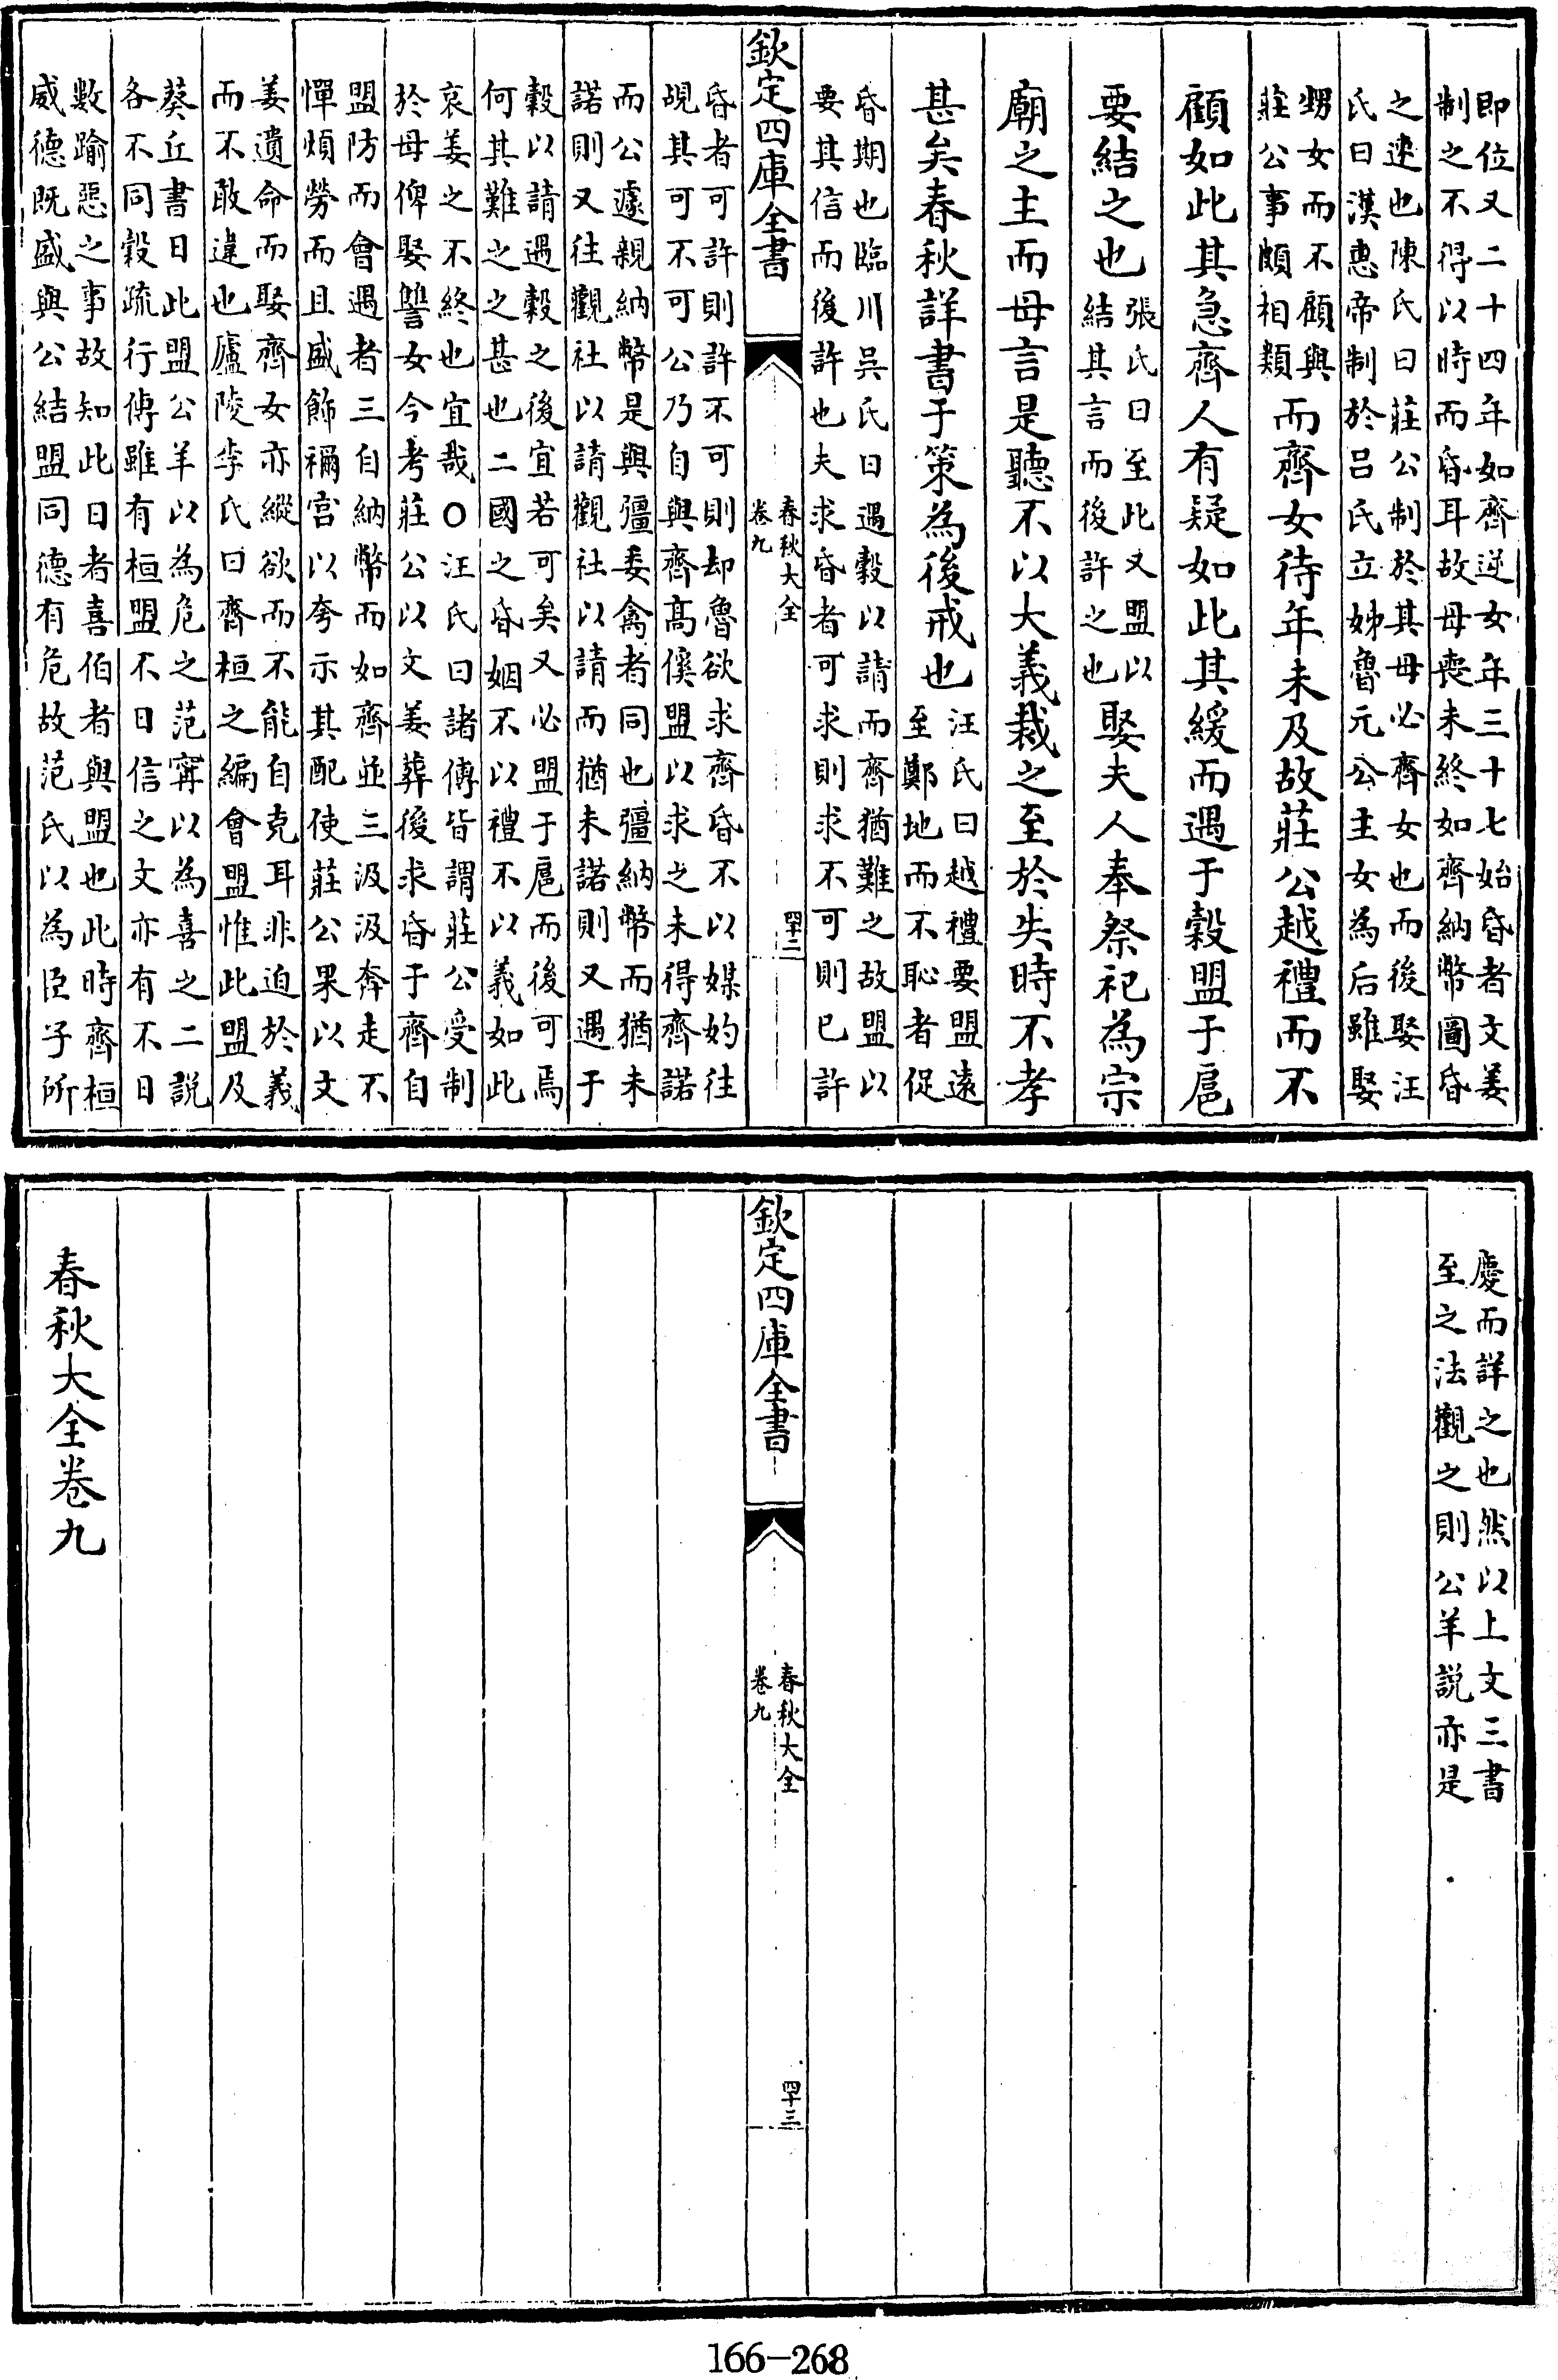 即位又二十四年如齊逆女年三十七始昏者文姜
制之不得以時而昏耳故母喪未終如齊納幣圖昏
之速也陳氏曰莊公制於其母必齊女也而後娶汪
氏曰漢惠帝制於吕氏立姊魯元公主女為后雖娶
甥女而不顧與
莊公事頗相類
而齊女待年未及故莊公越禮而不
顧如此其急齊人有疑如此其緩而遇于穀盟于扈
要結之也
張氏曰至此又盟以
結其言而後許之也
娶夫人奉祭祀為宗
廟之主而母言是聽不以大義裁之至於失時不孝
甚矣春秋詳書于策為後戒也
汪氏曰越禮要盟遠
至鄭地而不恥者促
昏期也臨川吳氏曰遇穀以請而齊猶難之故盟以
要其信而後許也夫求昏者可求則求不可則已許
欽定四庫全書
春秋大全
卷九
四十二
昏者可許則許不可則却魯欲求齊昏不以媒妁往
覘其可可不可公乃自與齊高傒盟以求之未得齊諾
而公遽親納幣是與彊委禽者同也彊納幣而猶未
諾則又往觀社以請觀社以請而猶未諾則又遇于
穀以請遇穀之後宜若可矣又必盟于扈而後可焉
何其難之之甚也二國之昏姻不以禮不以義如此
哀姜之不終也宜哉○汪氏曰諸傳皆謂莊公受制
於母俾娶讐女今考莊公以文姜葬後求昏于齊自
盟防而會遇者三自納幣而如齊並三汲汲奔走不
憚煩勞而且盛飾禰宫以夸示其配使莊公果以文
姜遺命而娶齊女亦縱欲而不能自克耳非迫於義
而不敢違也廬陵李氏曰齊桓之編會盟惟此盟及
葵丘書日此盟公羊以為危之范甯以為喜之二説
各不同穀疏行傳雖有桓盟不日信之文亦有不日
數踰惡之事故知此日者喜伯者與盟也此時齊桓
威德既盛與公結盟同德有危故范氏以為臣子所
慶而詳之也然以上文三書
至之法觀之則公羊説亦是
欽定四庫全書
春秋大全
卷九
四十三
春秋大全卷九
166-268